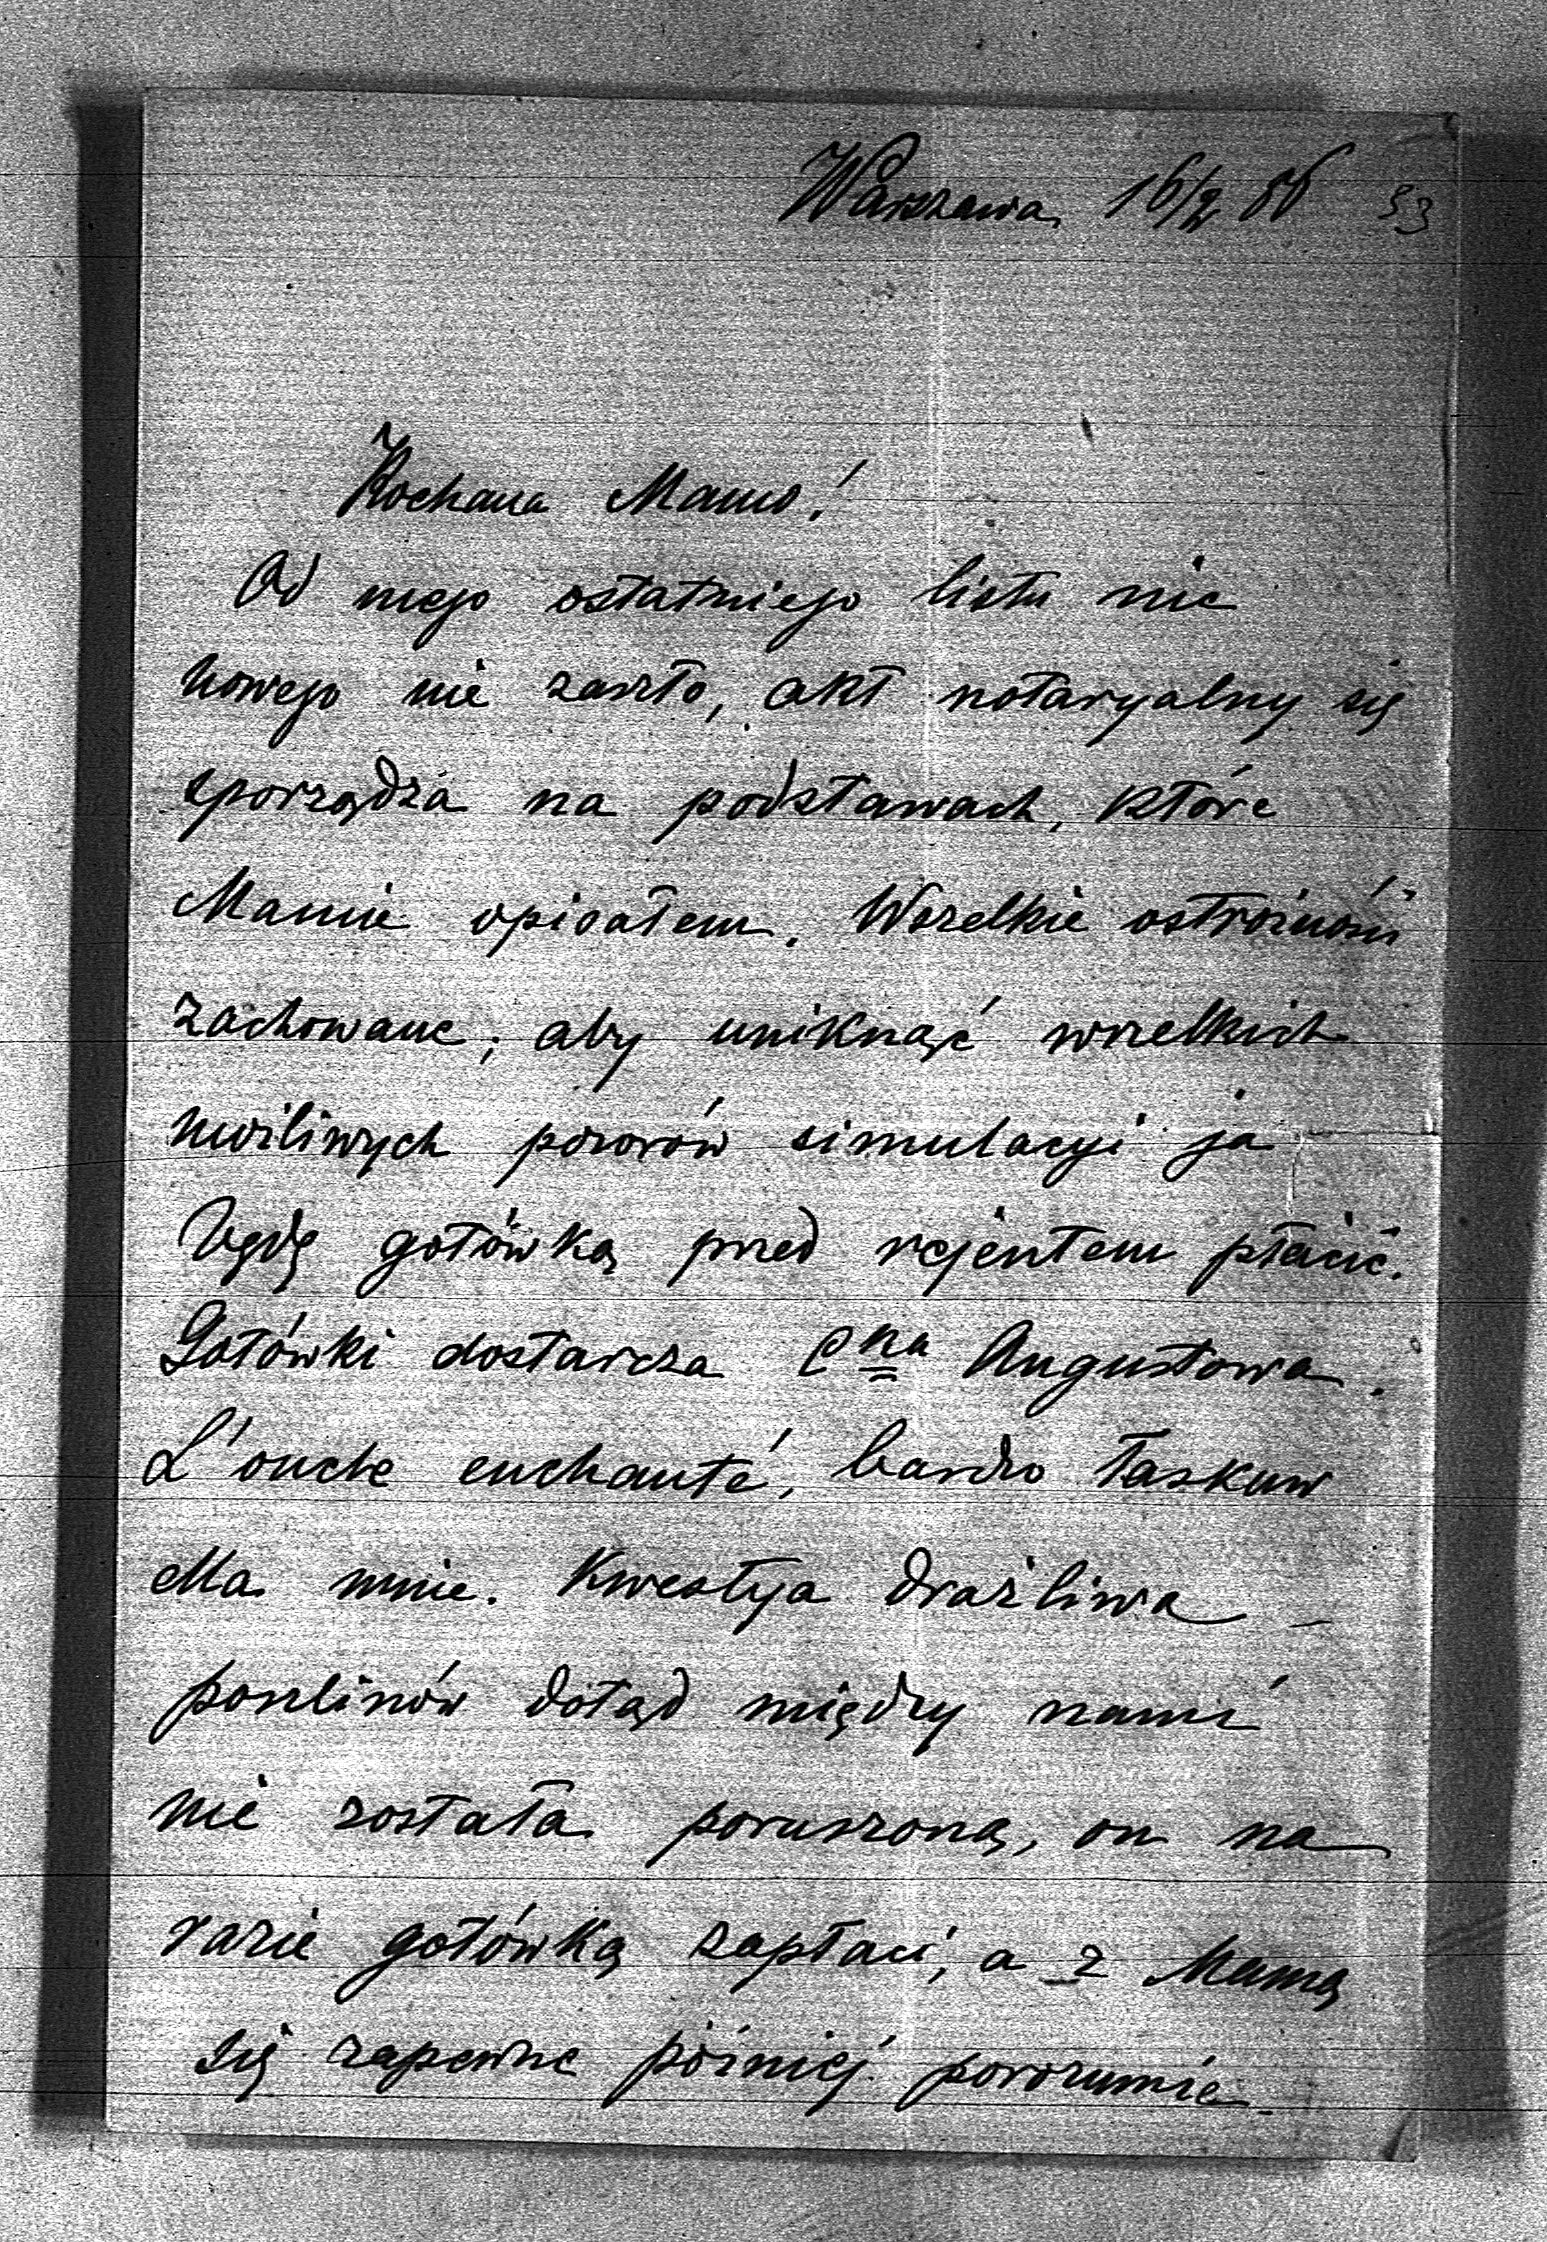 Warszawa, 16/2 86 53
Kochana Mamo!
Od mego ostatniego listu nic
nowego nie zaszło, akt notaryalny się
sporządza na podstawach, które
Mamie opisałem. Wszelkie ostrożności
zachowane; aby uniknąć wszelkich
możliwych pozorów simulacyi ja
będę gotówką przed rejentem płacić.
Gotówki dostarcza Augustowa.
L'oncle enchanté, bardzo łaskaw
dla mnie. Kwestya drażliwa
dotąd między nami
nie została poruszoną, on na
razie gotówką zapłaci, a z Mamą
się zapewne później porozumie